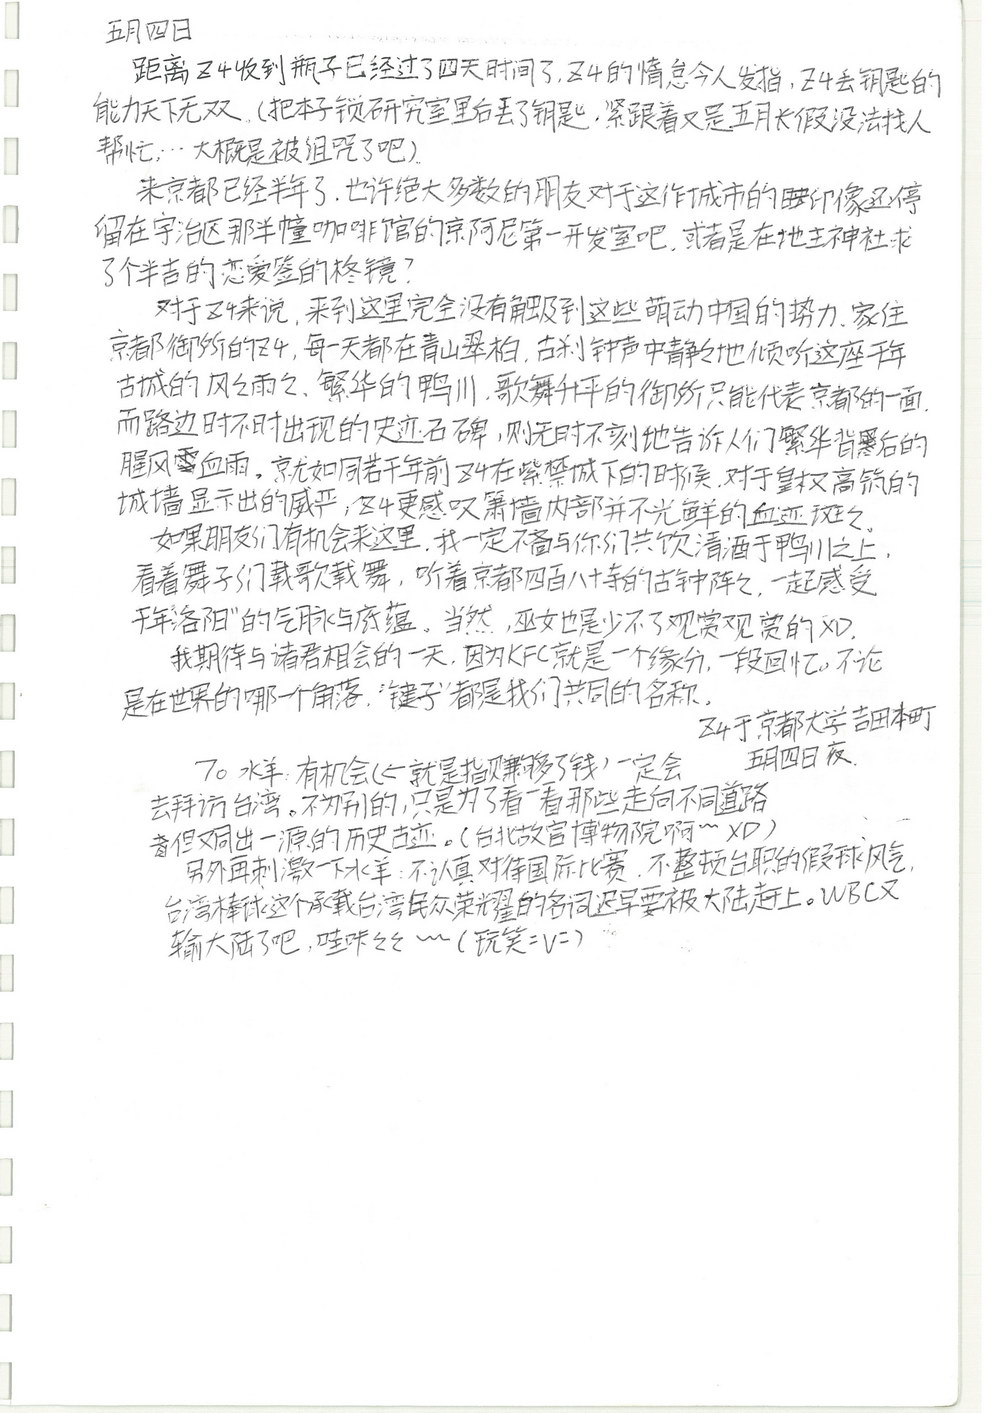 五月四日
距离Z4收到瓶子已经过了四天时间了，Z4的惰怠令人发指，Z4丢钥匙的
能力天下无双。（把本子锁研究室里后丢了钥匙，紧跟着又是五月长假没法找人
帮忙，… 大概是被诅咒了吧）
来京都已经半年了，也许绝大多数的朋友对于这作城市的印像还停
留在宇治区那半幢咖啡馆的京阿尼第一开发室吧，或者是在地主神社求
了个半吉的恋爱签的柊镜？
对于Z4来说，来到这里完全没有触及到这些萌动中国的势力、家住
京都御所的Z4，每一天都在青山翠柏，古刹钟声中静々地倾听这座千年
古城的风々雨々、繁华的鸭川，歌舞升平的御所只能代表京都的一面，
而路边时不时出现的史迹石碑，则无时不刻地告诉人们繁华背后的
腥风血雨。就如同若干年前Z4在紫禁城下的时候，对于皇权高筑的
城墙显示出的威严，Z4更感叹萧墙内部并不光鲜的血迹斑々。
如果朋友们有机会来这里，我一定不吝与你们共饮清酒于鸭川之上，
看着舞子们载歌载舞，听着京都四百八十寺的古钟阵々，一起感受
“千年洛阳”的气脉与底蕴。当然，巫女也是少不了观赏观赏的XD.
我期待与诸君相会的一天，因为KFC就是一个缘分，一段回忆。不论
是在世界的哪一个角落，“键子”都是我们共同的名称。
Z4于京都大学吉田本町
五月四日夜.
To 水羊：有机会（← 就是指赚够了钱）一定会
去拜访台湾。不为别的，只是为了看一看那些走向不同道路
但又同出一源的历史古迹。（台北故宫博物院啊～ XD）
另外再刺激一下水羊：不认真对待国际比赛，不整顿台职的假球风气，
台湾棒球这个承载台湾民众荣光耀的名词迟早要被大陆赶上。WBC又
输大陆了吧，哇咔々々 ～～（玩笑=V=）